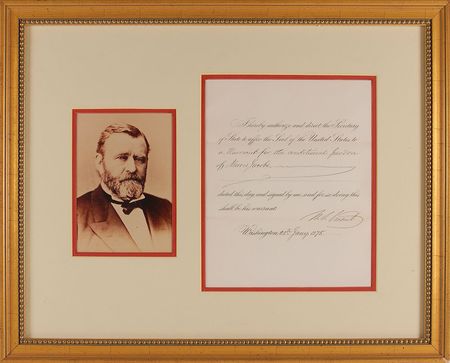 I hereby authorize and direct the Secretary
of State to affix the Seal of the United States to
a Warrant for the conditional pardon
of Jacobs
dated this day and signed by me and for so doing this
shall be his warrant.
U. S. Grant
Washington, Jan'y, 1875.